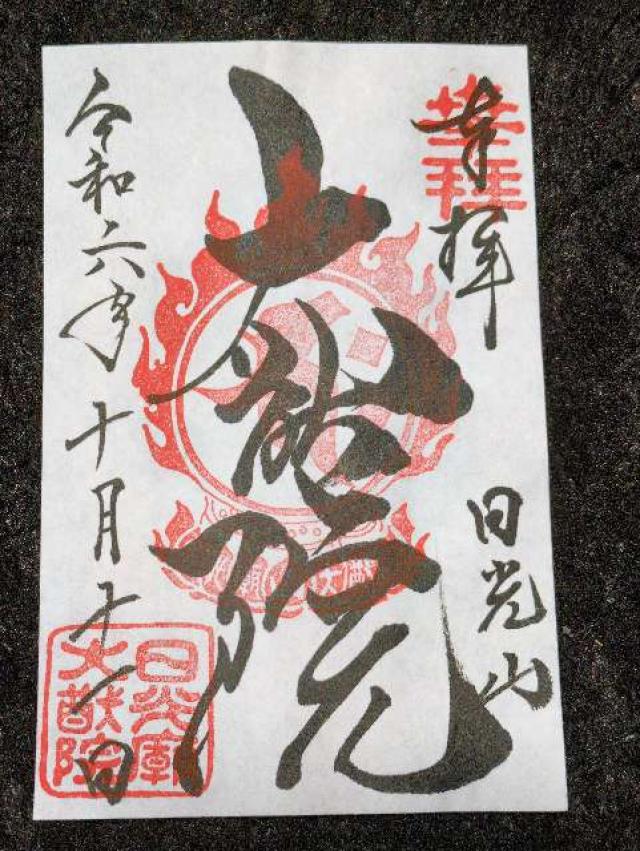 奉拝
日光山
大猷院
令和六年十月十一日
奉拝
日光廟
大猷院